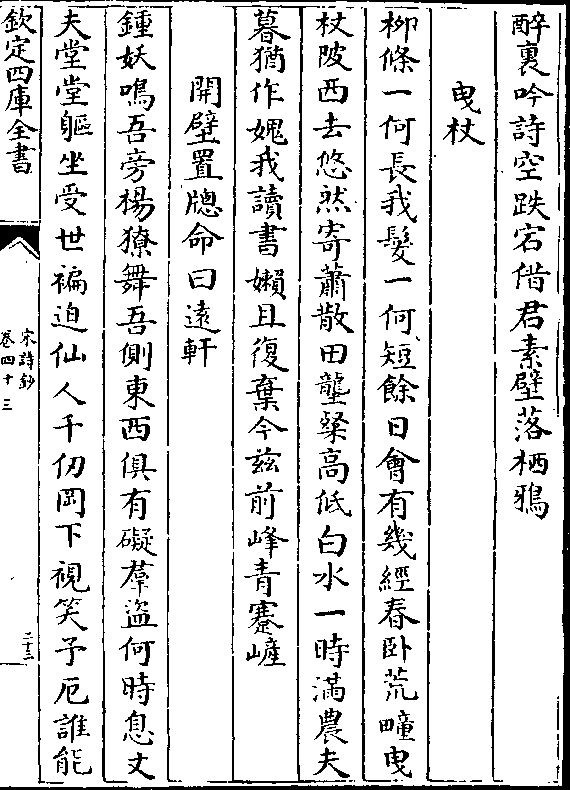 醉裏吟詩空跌宕借君素壁落栖鴉
曳杖
柳條一何長我髮一何短餘日會有幾經春卧荒疃曳
杖陂西去悠然寄蕭散田壟粲高低白水一時滿農夫
暮猶作媿我讀書嬾且復棄今兹前峰青蹇嵼
開壁置牕命曰遠軒
鍾妖鳴吾旁楊獠舞吾側東西俱有礙羣盜何時息丈
夫堂堂軀坐受世褊迫仙人千仞岡下視笑予厄誰能
欽定四庫全書
宋詩鈔
卷四十三
二十三